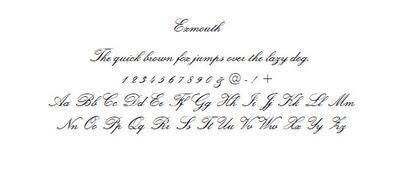 Exmouth
The quick brown fox jumps over the lazy dog.
1 2 3 4 5 6 7 8 9 0 & @ - ! +
Aa Bb Cc Dd Ee Ff Gg Hh Ii Jj Kk Ll Mm
Nn Oo Pp Qq Rr Ss Tt Uu Vv Ww Xx Yy Zz